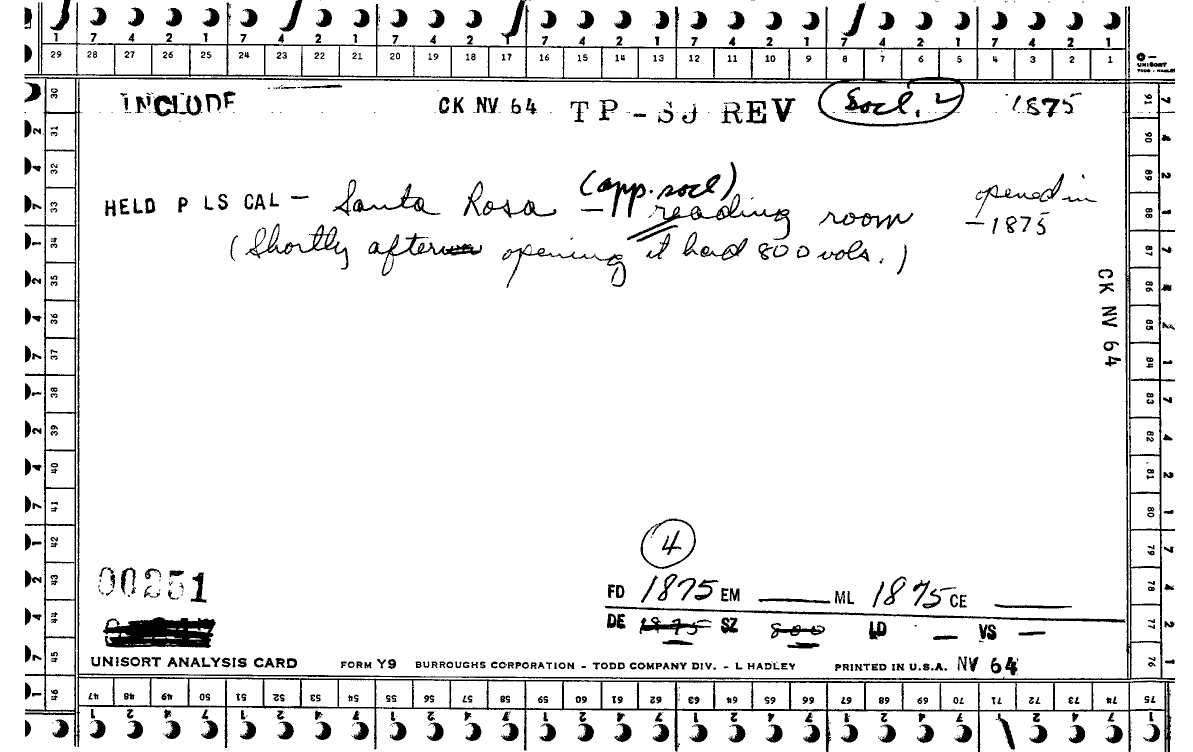 1 7 4 2 1 7 4 2 1 7 4 2 1 7 4 2 1 7 4 2 1 7 4 2 1 7 4 2 1
29 28 27 26 25 24 23 22 21 20 19 18 17 16 15 14 13 12 11 10 9 8 7 6 5 4 3 2 1
UNISORT
TODD - HADLEY
INCLUDE CK NV 64 TP - SJ REV Socl. 2 1875
(app. socl)
HELD P LS CAL - Santa Rosa - reading room opened in
-1875
(Shortly after opening it had 800 vols.)
CK NV 64
4
00251
FD 1875 EM ML 1875 CE
DE 1875 SZ 800 LD - VS -
UNISORT ANALYSIS CARD FORM Y9 BURROUGHS CORPORATION - TODD COMPANY DIV. - L HADLEY PRINTED IN U.S.A. NV 64
30 31 32 33 34 35 36 37 38 39 40 41 42 43 44 45 46
91 90 89 88 87 86 85 84 83 82 81 80 79 78 77 76 75
47 48 49 50 51 52 53 54 55 56 57 58 59 60 61 62 63 64 65 66 67 68 69 70 71 72 73 74 75